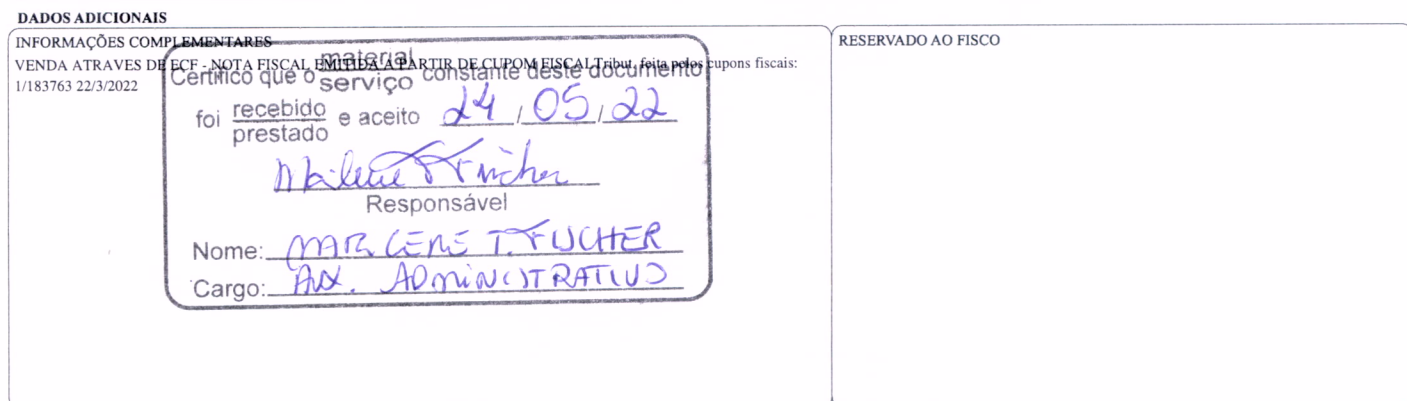 DADOS ADICIONAIS
INFORMAÇÕES COMPLEMENTARES
VENDA ATRAVES DE ECF - NOTA FISCAL EMITIDA A PARTIR DE CUPOM FISCAL Tribut. feita pelos cupons fiscais:
1/183763 22/3/2022
RESERVADO AO FISCO
Certifico que o material serviço constante deste documento
foi recebido prestado e aceito 24/05/22
Responsável
Nome: MARLENE T. FUCHER
Cargo: AUX. ADMINISTRATIVO